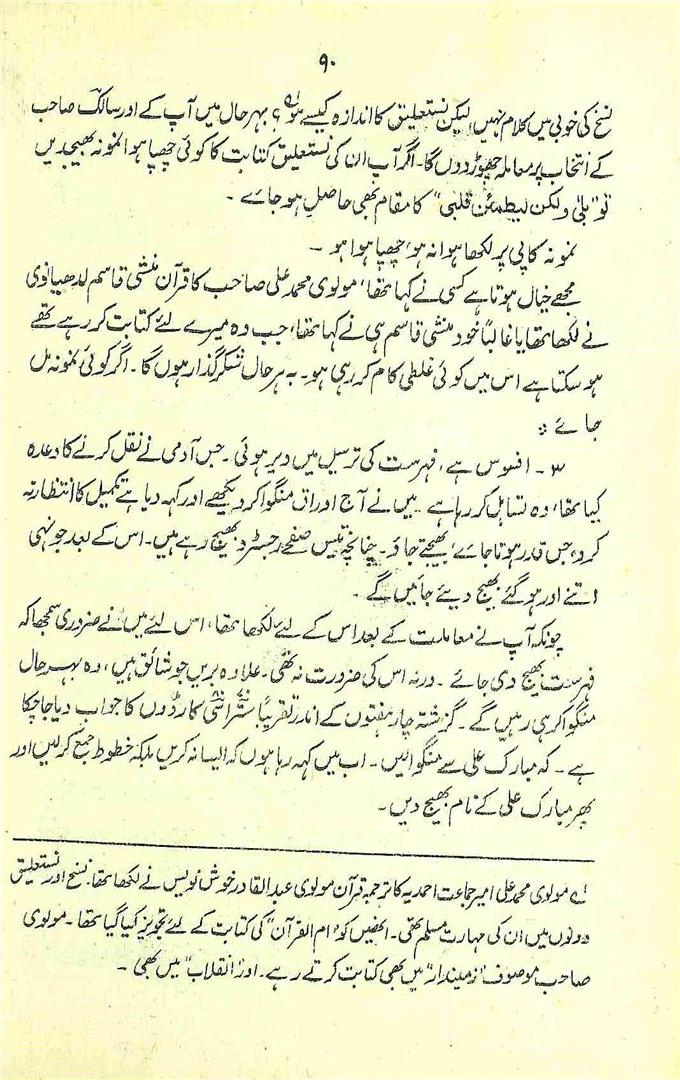 ۹۰
نسخ کی خوبی میں کلام نہیں، لیکن نستعلیق کا اندازہ کیسے ہو؟ بہرحال میں آپ کے اور سالک صاحب
کے انتخاب پر معاملہ چھوڑ دوں گا۔ اگر آپ ان کی نستعلیق کتابت کا کوئی چھپا ہوا نمونہ بھیجدیں
تو "بلیٰ ولکن لیطمئن قلبی" کا مقام بھی حاصل ہو جائے ۔
نمونہ کاپی پر لکھا ہوا نہ ہو، چھپا ہوا ہو ۔
مجھے خیال ہوتا ہے کسی نے کہا تھا، مولوی محمد علی صاحب کا قرآن منشی قاسم لدھیانوی
نے لکھا تھا یا غالباً خود منشی قاسم ہی نے کہا تھا، جب وہ میرے لئے کتابت کر رہے تھے
ہو سکتا ہے اس میں کوئی غلطی کام کر رہی ہو۔ بہ ہر حال شکر گذار ہوں گا۔ اگر کوئی نمونہ مل
جائے ؞
۳ ۔ افسوس ہے، فہرست کی ترسیل میں دیر ہوئی ۔ جس آدمی نے نقل کرنے کا وعدہ
کیا تھا، وہ تساہل کر رہا ہے ۔ میں نے آج اوراق منگوا کر دیکھے اور کہہ دیا ہے تکمیل کا انتظار نہ
کرو، جس قدر ہوتا جائے، بھیجتے جاؤ ۔ چنانچہ تیس صفحے رجسٹرڈ بھیج رہے ہیں۔ اس کے بعد جونہی
اتنے اور ہو گئے بھیج دیئے جائیں گے ۔
چونکہ آپ نے معاملت کے بعد اس کے لئے لکھا تھا، اس لئے میں نے ضروری سمجھا کہ
فہرست بھیج دی جائے ۔ ورنہ اس کی ضرورت نہ تھی ۔ علاوہ بریں جو شائق ہیں، وہ بہر حال
منگوا کر ہی رہیں گے ۔ گزشتہ چار ہفتوں کے اندر تقریباً ستر اسّی کارڈوں کا جواب دیا جا چکا
ہے ۔ کہ مبارک علی سے منگوائیں ۔ اب میں کہہ رہا ہوں کہ ایسا نہ کریں بلکہ خطوط جمع کر لیں اور
پھر مبارک علی کے نام بھیج دیں ۔
لے مولوی محمد علی امیر جماعت احمدیہ کا ترجمہ قرآن مولوی عبدالقادر خوش نویس نے لکھا تھا۔ نسخ اور نستعلیق
دونوں میں ان کی مہارت مسلم تھی۔ انھیں کو "ام القرآن" کی کتابت کے لئے تجویز کیا گیا تھا ۔ مولوی
صاحب موصوف "زمیندار" میں بھی کتابت کرتے رہے۔ اور "انقلاب" میں بھی ۔